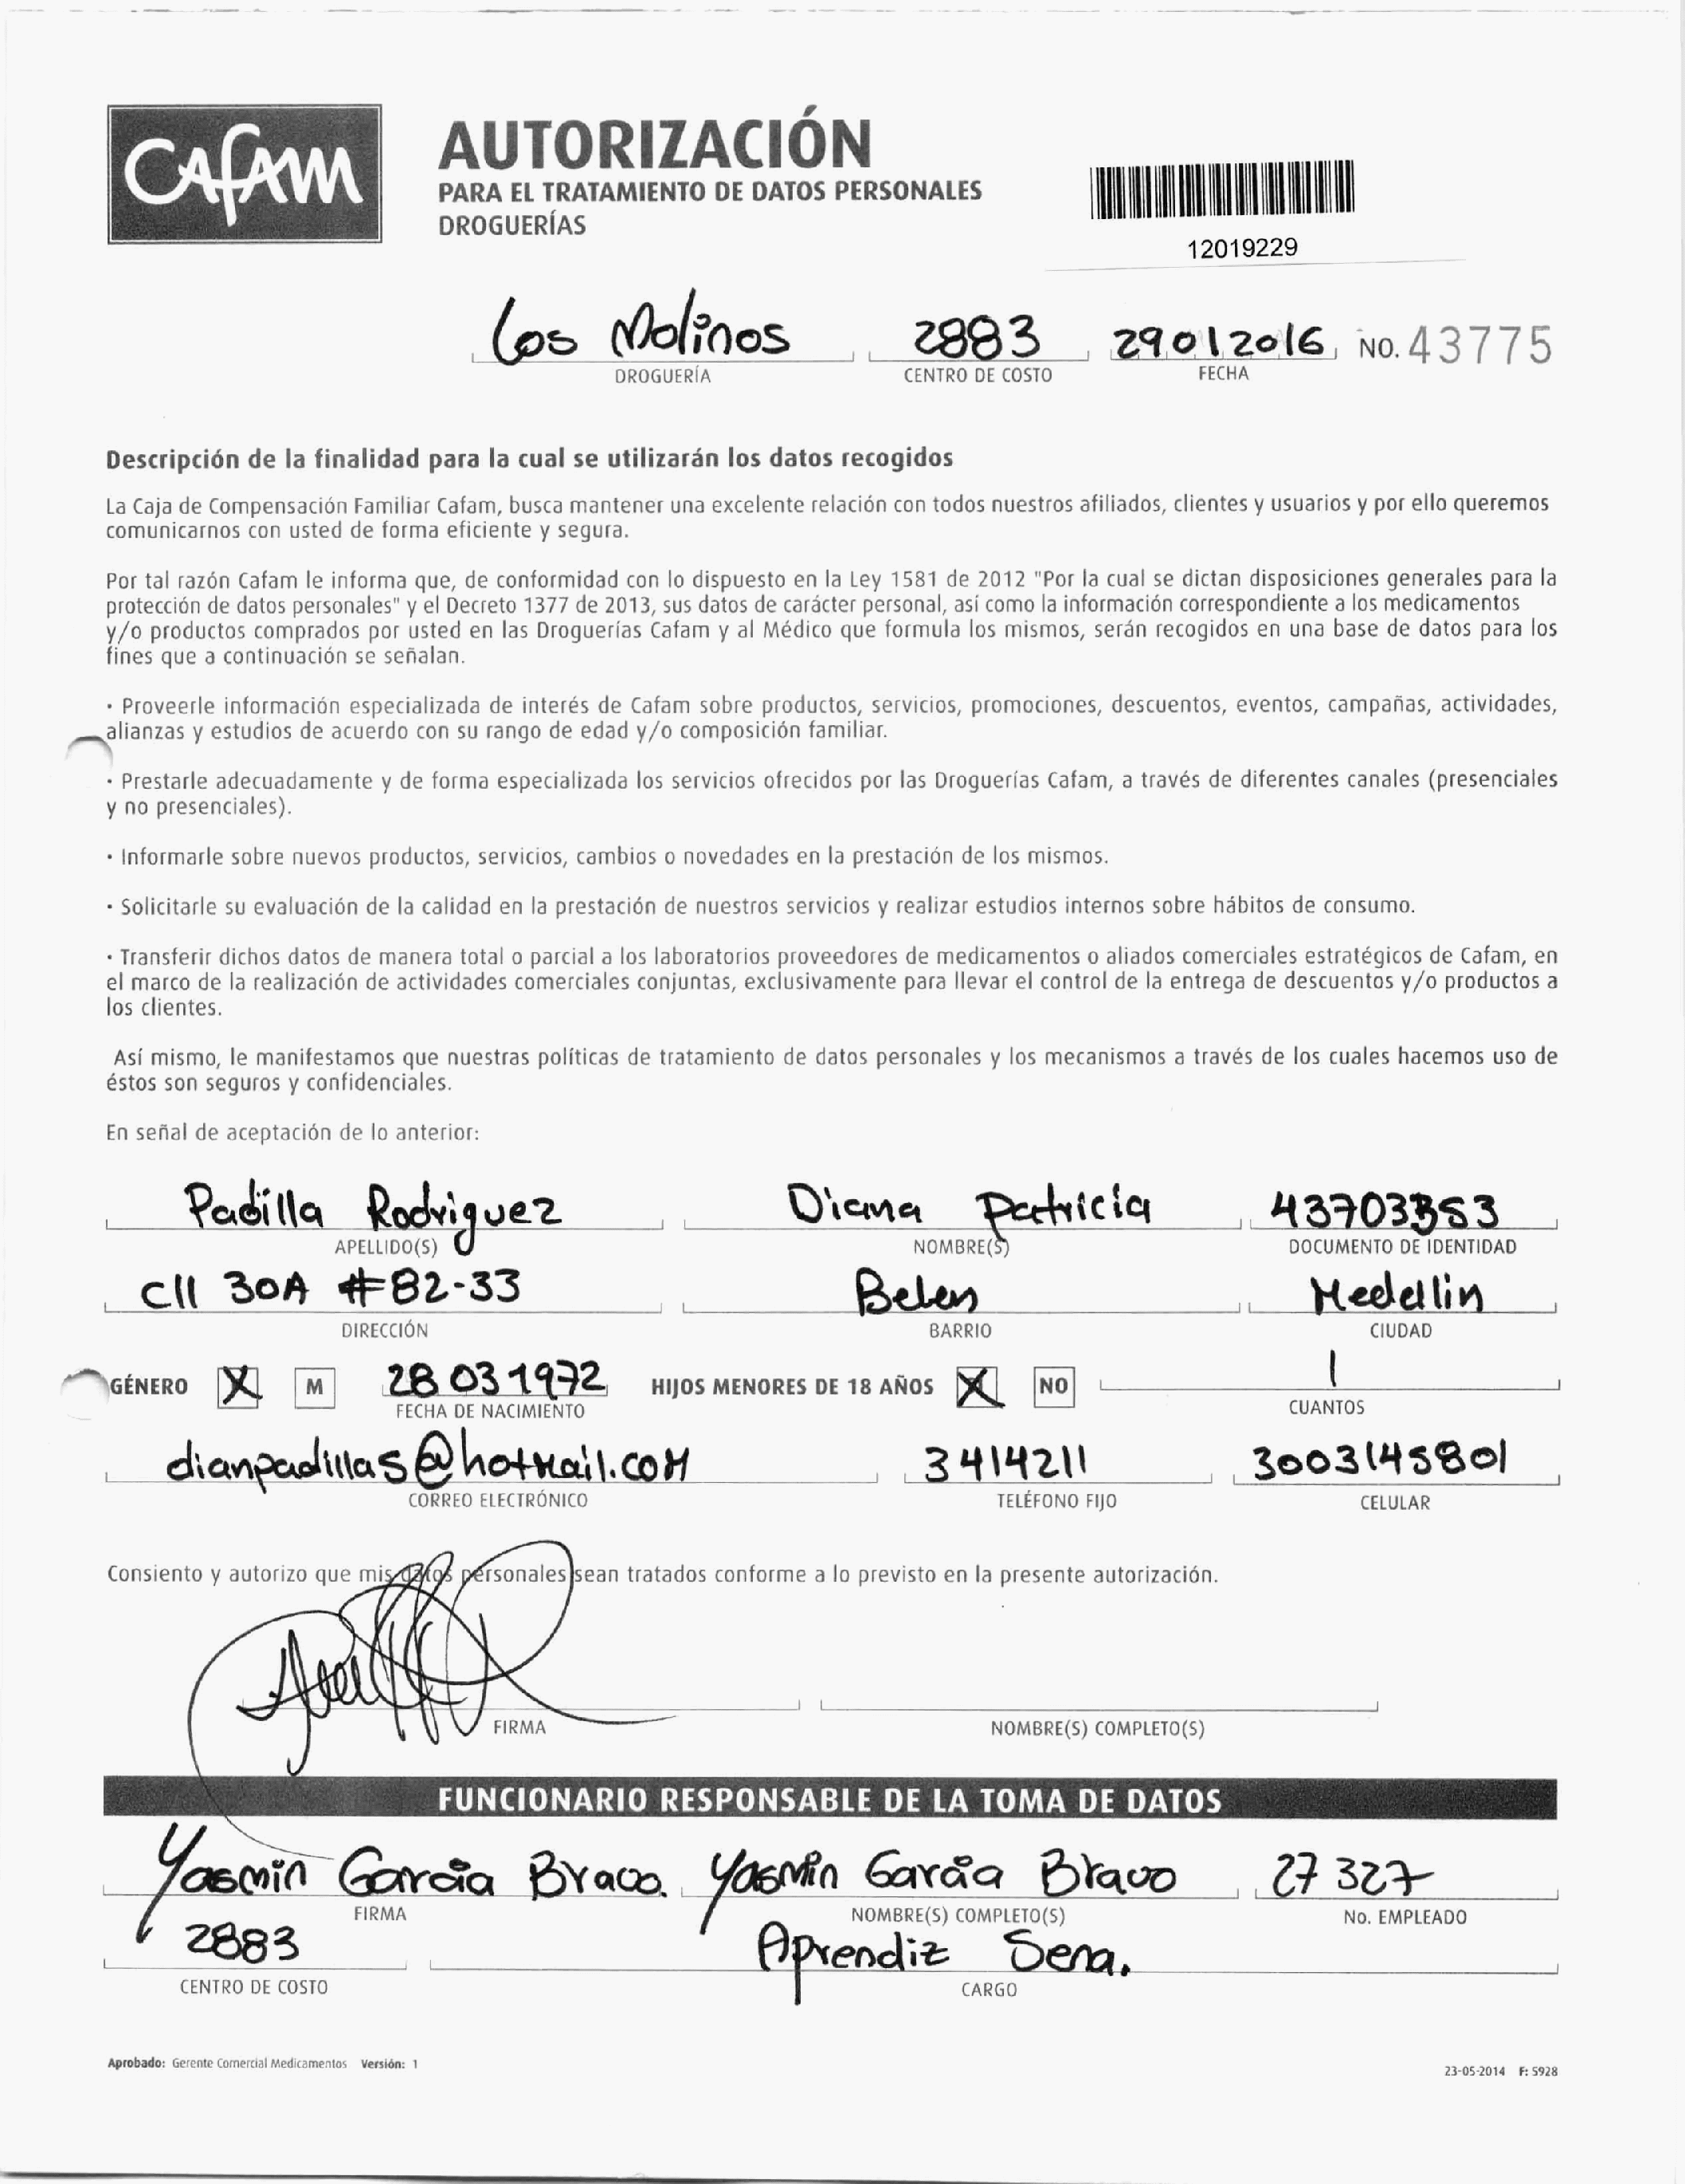 CAFAM
AUTORIZACIÓN
PARA EL TRATAMIENTO DE DATOS PERSONALES
DROGUERÍAS
12019229
Los Molinos 2883 29012016 NO. 43775
DROGUERÍA CENTRO DE COSTO FECHA
Descripción de la finalidad para la cual se utilizarán los datos recogidos
La Caja de Compensación Familiar Cafam, busca mantener una excelente relación con todos nuestros afiliados, clientes y usuarios y por ello queremos
comunicarnos con usted de forma eficiente y segura.
Por tal razón Cafam le informa que, de conformidad con lo dispuesto en la Ley 1581 de 2012 "Por la cual se dictan disposiciones generales para la
protección de datos personales" y el Decreto 1377 de 2013, sus datos de carácter personal, así como la información correspondiente a los medicamentos
y/o productos comprados por usted en las Droguerías Cafam y al Médico que formula los mismos, serán recogidos en una base de datos para los
fines que a continuación se señalan.
· Proveerle información especializada de interés de Cafam sobre productos, servicios, promociones, descuentos, eventos, campañas, actividades,
alianzas y estudios de acuerdo con su rango de edad y/o composición familiar.
· Prestarle adecuadamente y de forma especializada los servicios ofrecidos por las Droguerías Cafam, a través de diferentes canales (presenciales
y no presenciales).
· Informarle sobre nuevos productos, servicios, cambios o novedades en la prestación de los mismos.
· Solicitarle su evaluación de la calidad en la prestación de nuestros servicios y realizar estudios internos sobre hábitos de consumo.
· Transferir dichos datos de manera total o parcial a los laboratorios proveedores de medicamentos o aliados comerciales estratégicos de Cafam, en
el marco de la realización de actividades comerciales conjuntas, exclusivamente para llevar el control de la entrega de descuentos y/o productos a
los clientes.
Así mismo, le manifestamos que nuestras políticas de tratamiento de datos personales y los mecanismos a través de los cuales hacemos uso de
éstos son seguros y confidenciales.
En señal de aceptación de lo anterior:
Padilla Rodriguez Diana Patricia
APELLIDO(S) NOMBRE(S) DOCUMENTO DE IDENTIDAD
Cll 30A #82-33 Belen Medellin
DIRECCIÓN BARRIO CIUDAD
GÉNERO X M 28 03 1972 HIJOS MENORES DE 18 AÑOS X NO 1
FECHA DE NACIMIENTO CUANTOS
dianpadillas@hotmail.com 3414211 3003145801
CORREO ELECTRÓNICO TELÉFONO FIJO CELULAR
Consiento y autorizo que mis datos personales sean tratados conforme a lo previsto en la presente autorización.
FIRMA NOMBRE(S) COMPLETO(S)
FUNCIONARIO RESPONSABLE DE LA TOMA DE DATOS
Yasmin Garcia Bravo. Yasmin Garcia Bravo 27 327
FIRMA NOMBRE(S) COMPLETO(S) No. EMPLEADO
2883 Aprendiz Sena.
CENTRO DE COSTO CARGO
Aprobado: Gerente Comercial Medicamentos Versión: 1
23-05-2014 F: 5928